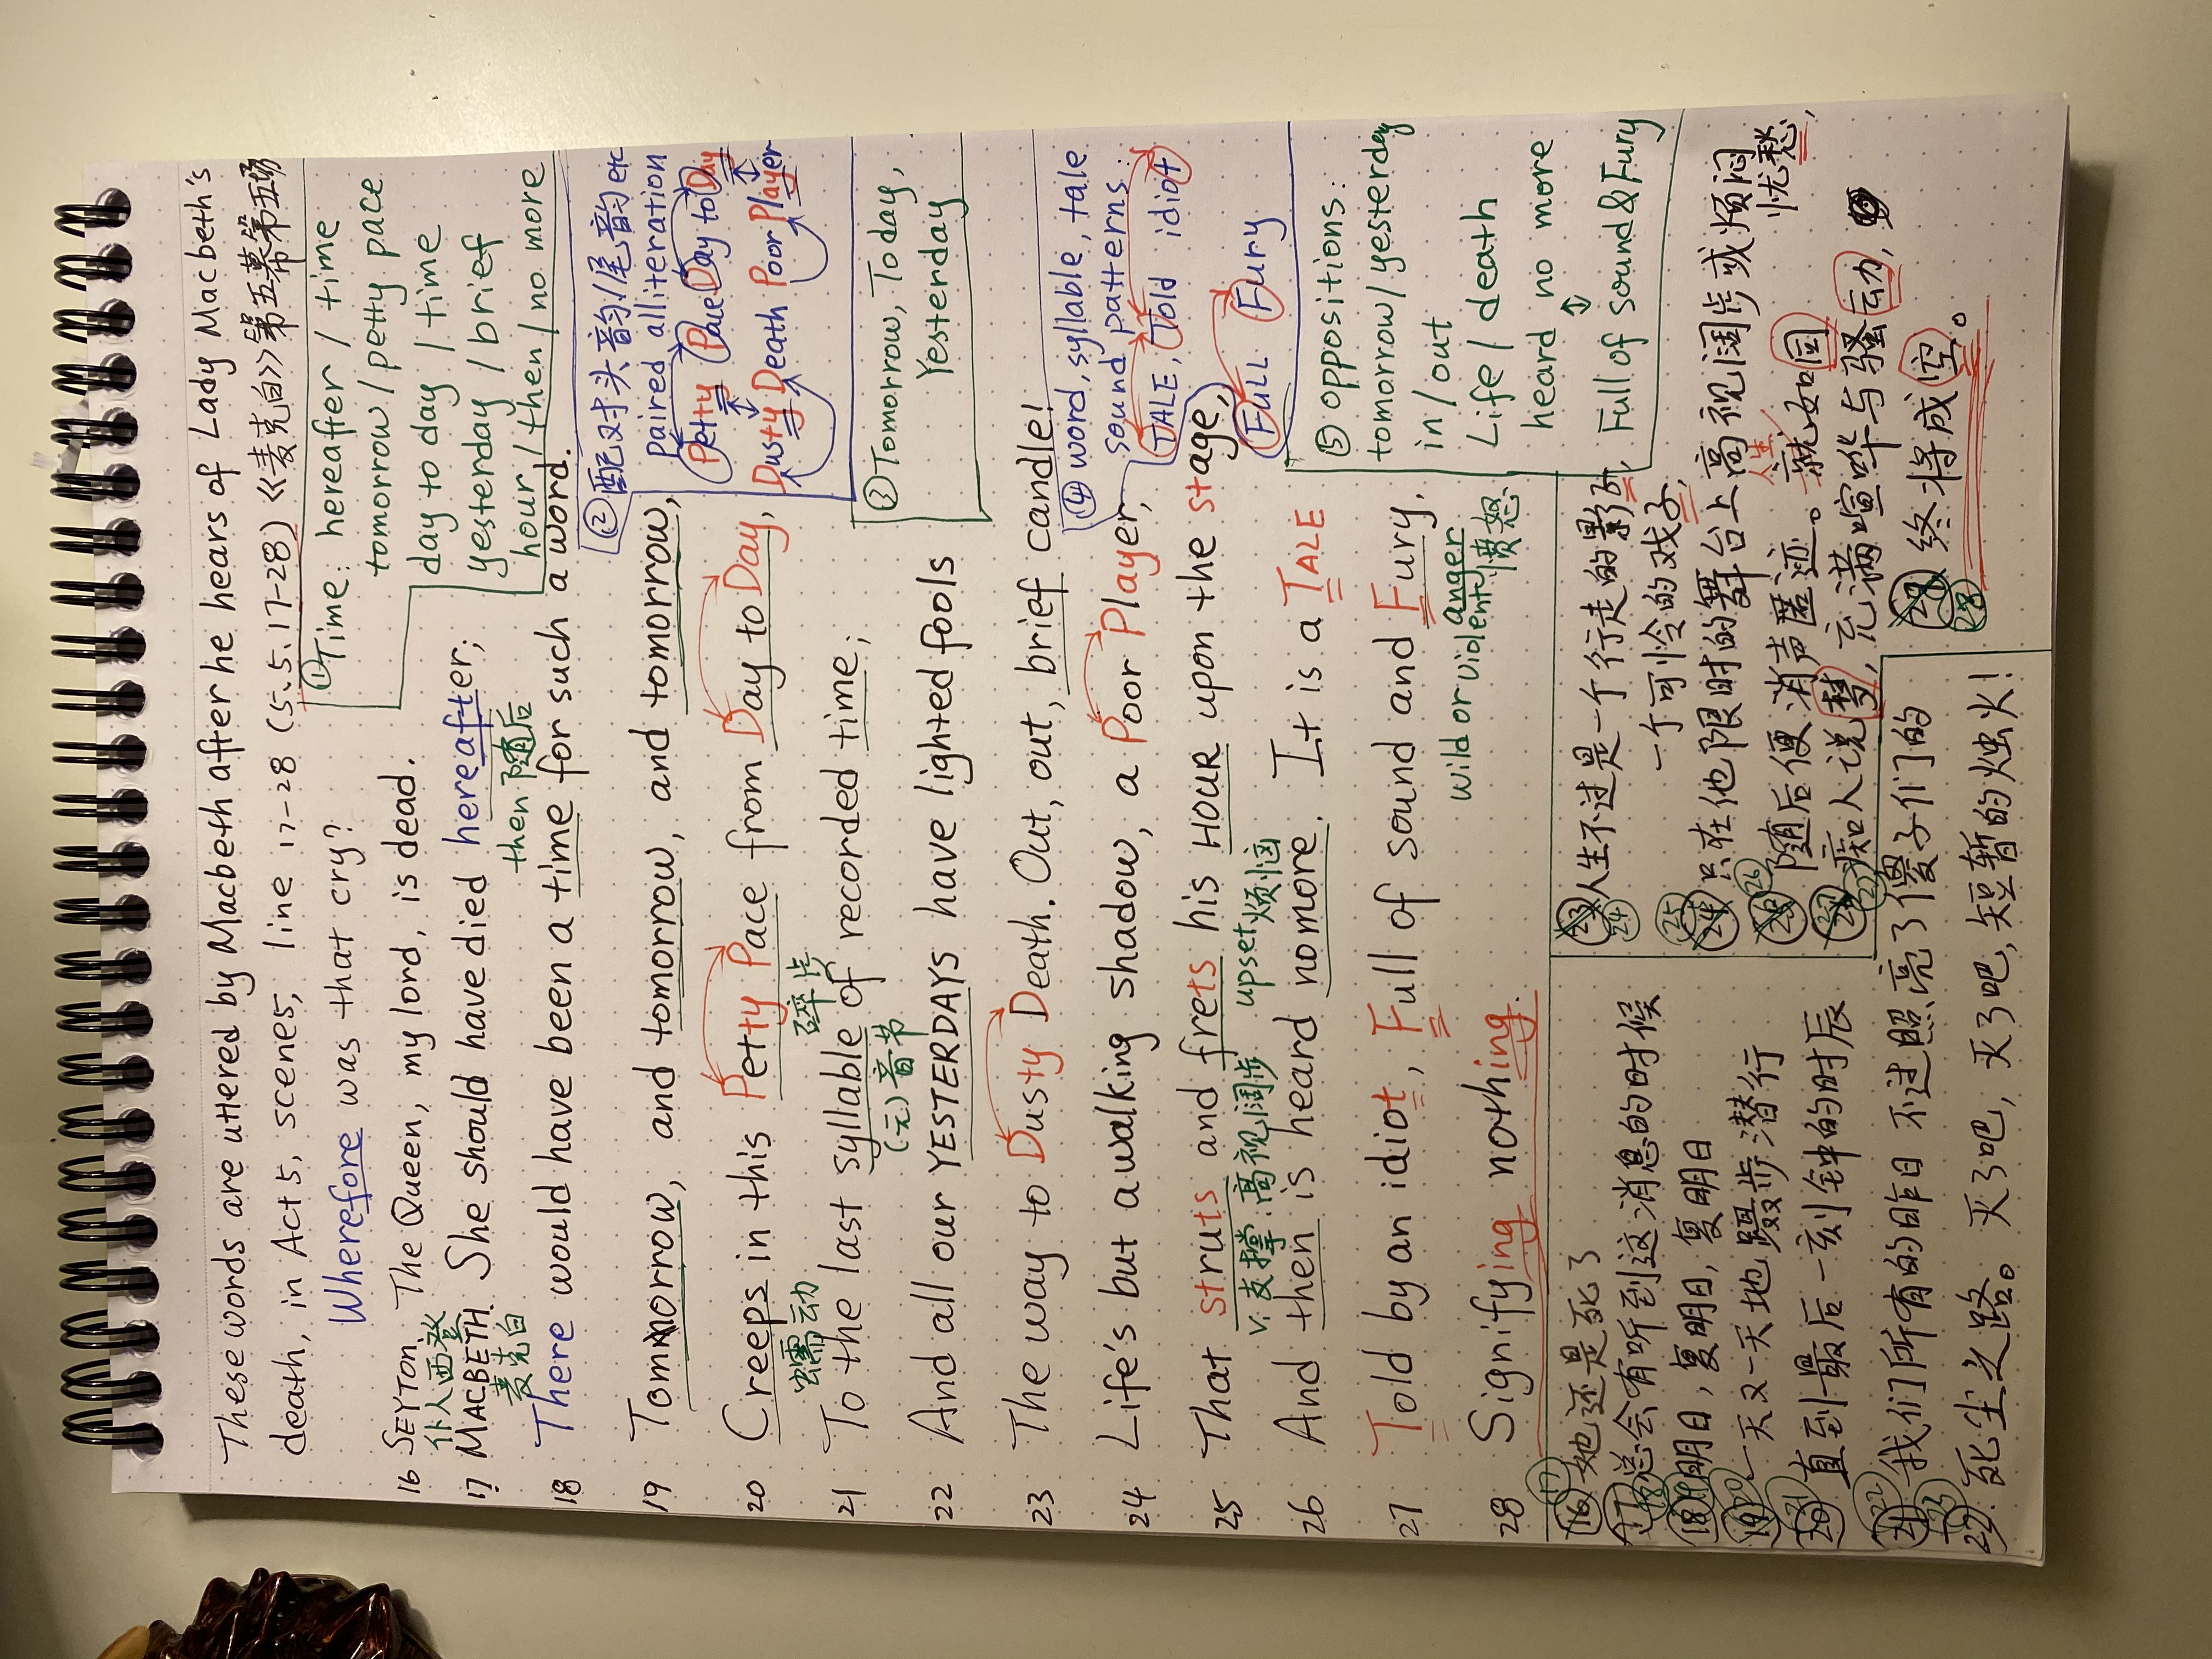 These words are uttered by Macbeth after he hears of Lady Macbeth's
death, in Act 5, scene 5, line 17-28 (5.5.17-28) 《麦克白》第五幕第五场
Wherefore was that cry?
① Time: hereafter / time
tomorrow / petty pace
day to day / time
yesterday / brief
hour / then / no more
16 SEYTON The Queen, my lord, is dead.
仆人西登
17 MACBETH. She should have died hereafter;
麦克白
then 随后
18 There would have been a time for such a word.
② 配对头韵/尾韵 etc
paired alliteration
Petty Pace Day to Day
Dusty Death Poor Player
19 Tomorrow, and tomorrow, and tomorrow,
20 Creeps in this Petty Pace from Day to Day,
蠕动
碎步
③ Tomorrow, Today,
Yesterday
21 To the last syllable of recorded time;
(元)音节
22 And all our YESTERDAYS have lighted fools
23 The way to Dusty Death. Out, out, brief candle!
④ word, syllable, tale
sound patterns:
TALE, Told idiot
Full Fury
24 Life's but a walking shadow, a Poor Player,
25 That struts and frets his HOUR upon the stage,
v. 支撑:高视阔步 upset 烦恼
26 And then is heard no more. It is a TALE
⑤ oppositions:
tomorrow / yesterday
in / out
Life / death
heard no more
Full of sound & Fury
27 Told by an idiot, Full of sound and Fury,
wild or violent anger 愤怒
28 Signifying nothing.
17 她还是死了
18 总会有听到这消息的时候
19 明日,复明日,复明日
20 一天又一天地蹑步潜行
21 直到最后一刻钟的时辰
22 我们所有的昨日 不过照亮了傻子们的
23 死尘之路。灭了吧,灭了吧,短暂的烛火!
24 人生不过是一个行走的影子,
一个可怜的戏子,
25 只在他限时的舞台上高视阔步或烦闷
忧愁,
26 随后便消声匿迹。人生就如同
27 痴人说梦,充满喧哗与骚动,
28 终将成空。